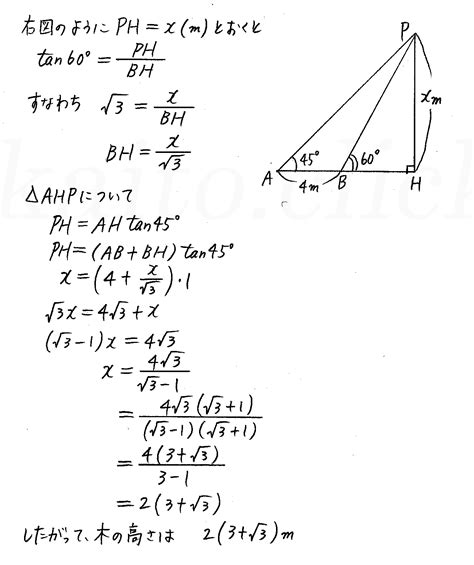 右図のように PH = x (m) とおくと
tan60° = PH/BH
すなわち √3 = x/BH
BH = x/√3
△AHPについて
PH = AH tan45°
PH = (AB + BH) tan45°
x = (4 + x/√3)・1
√3x = 4√3 + x
(√3 - 1)x = 4√3
x = 4√3/(√3 - 1)
= 4√3(√3 + 1)/((√3 - 1)(√3 + 1))
= 4(3 + √3)/(3 - 1)
= 2(3 + √3)
したがって、木の高さは 2(3 + √3) m
P
xm
45°
60°
A
4m
B
H